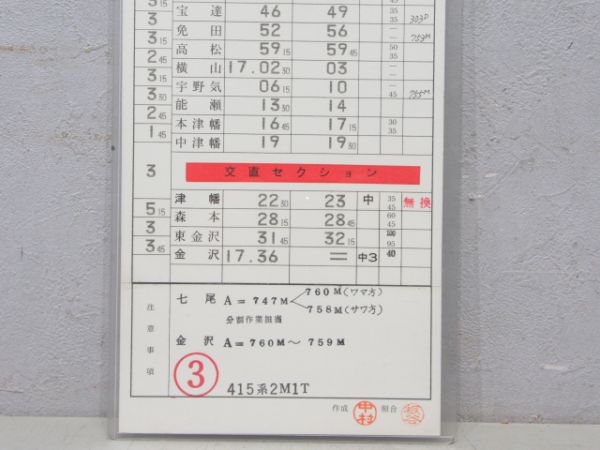 3 15
宝達 46 49 35 35
3 免田 52 56 — — 303D
3 15 高松 59 15 59 45 50 35 759M
2 45 横山 17.02 30 03 — —
3 15 宇野気 06 15 10 — 45 755M
3 30 能瀬 13 30 14
2 45 本津幡 16 45 17 15 30 35
1 45 中津幡 19 19 30
3 交直セクション
津幡 22 30 23 中 35 45 無換
5 15 森本 28 15 28 45 60 45
3 東金沢 31 45 32 15 100 95
3 45 金沢 17.36 = 中3 40
注意事項
七尾 A=747M 760M(ワマ方)
758M(サワ方)
分割作業担当
金沢 A=760M~759M
③
415系2M1T
作成 中村 照合